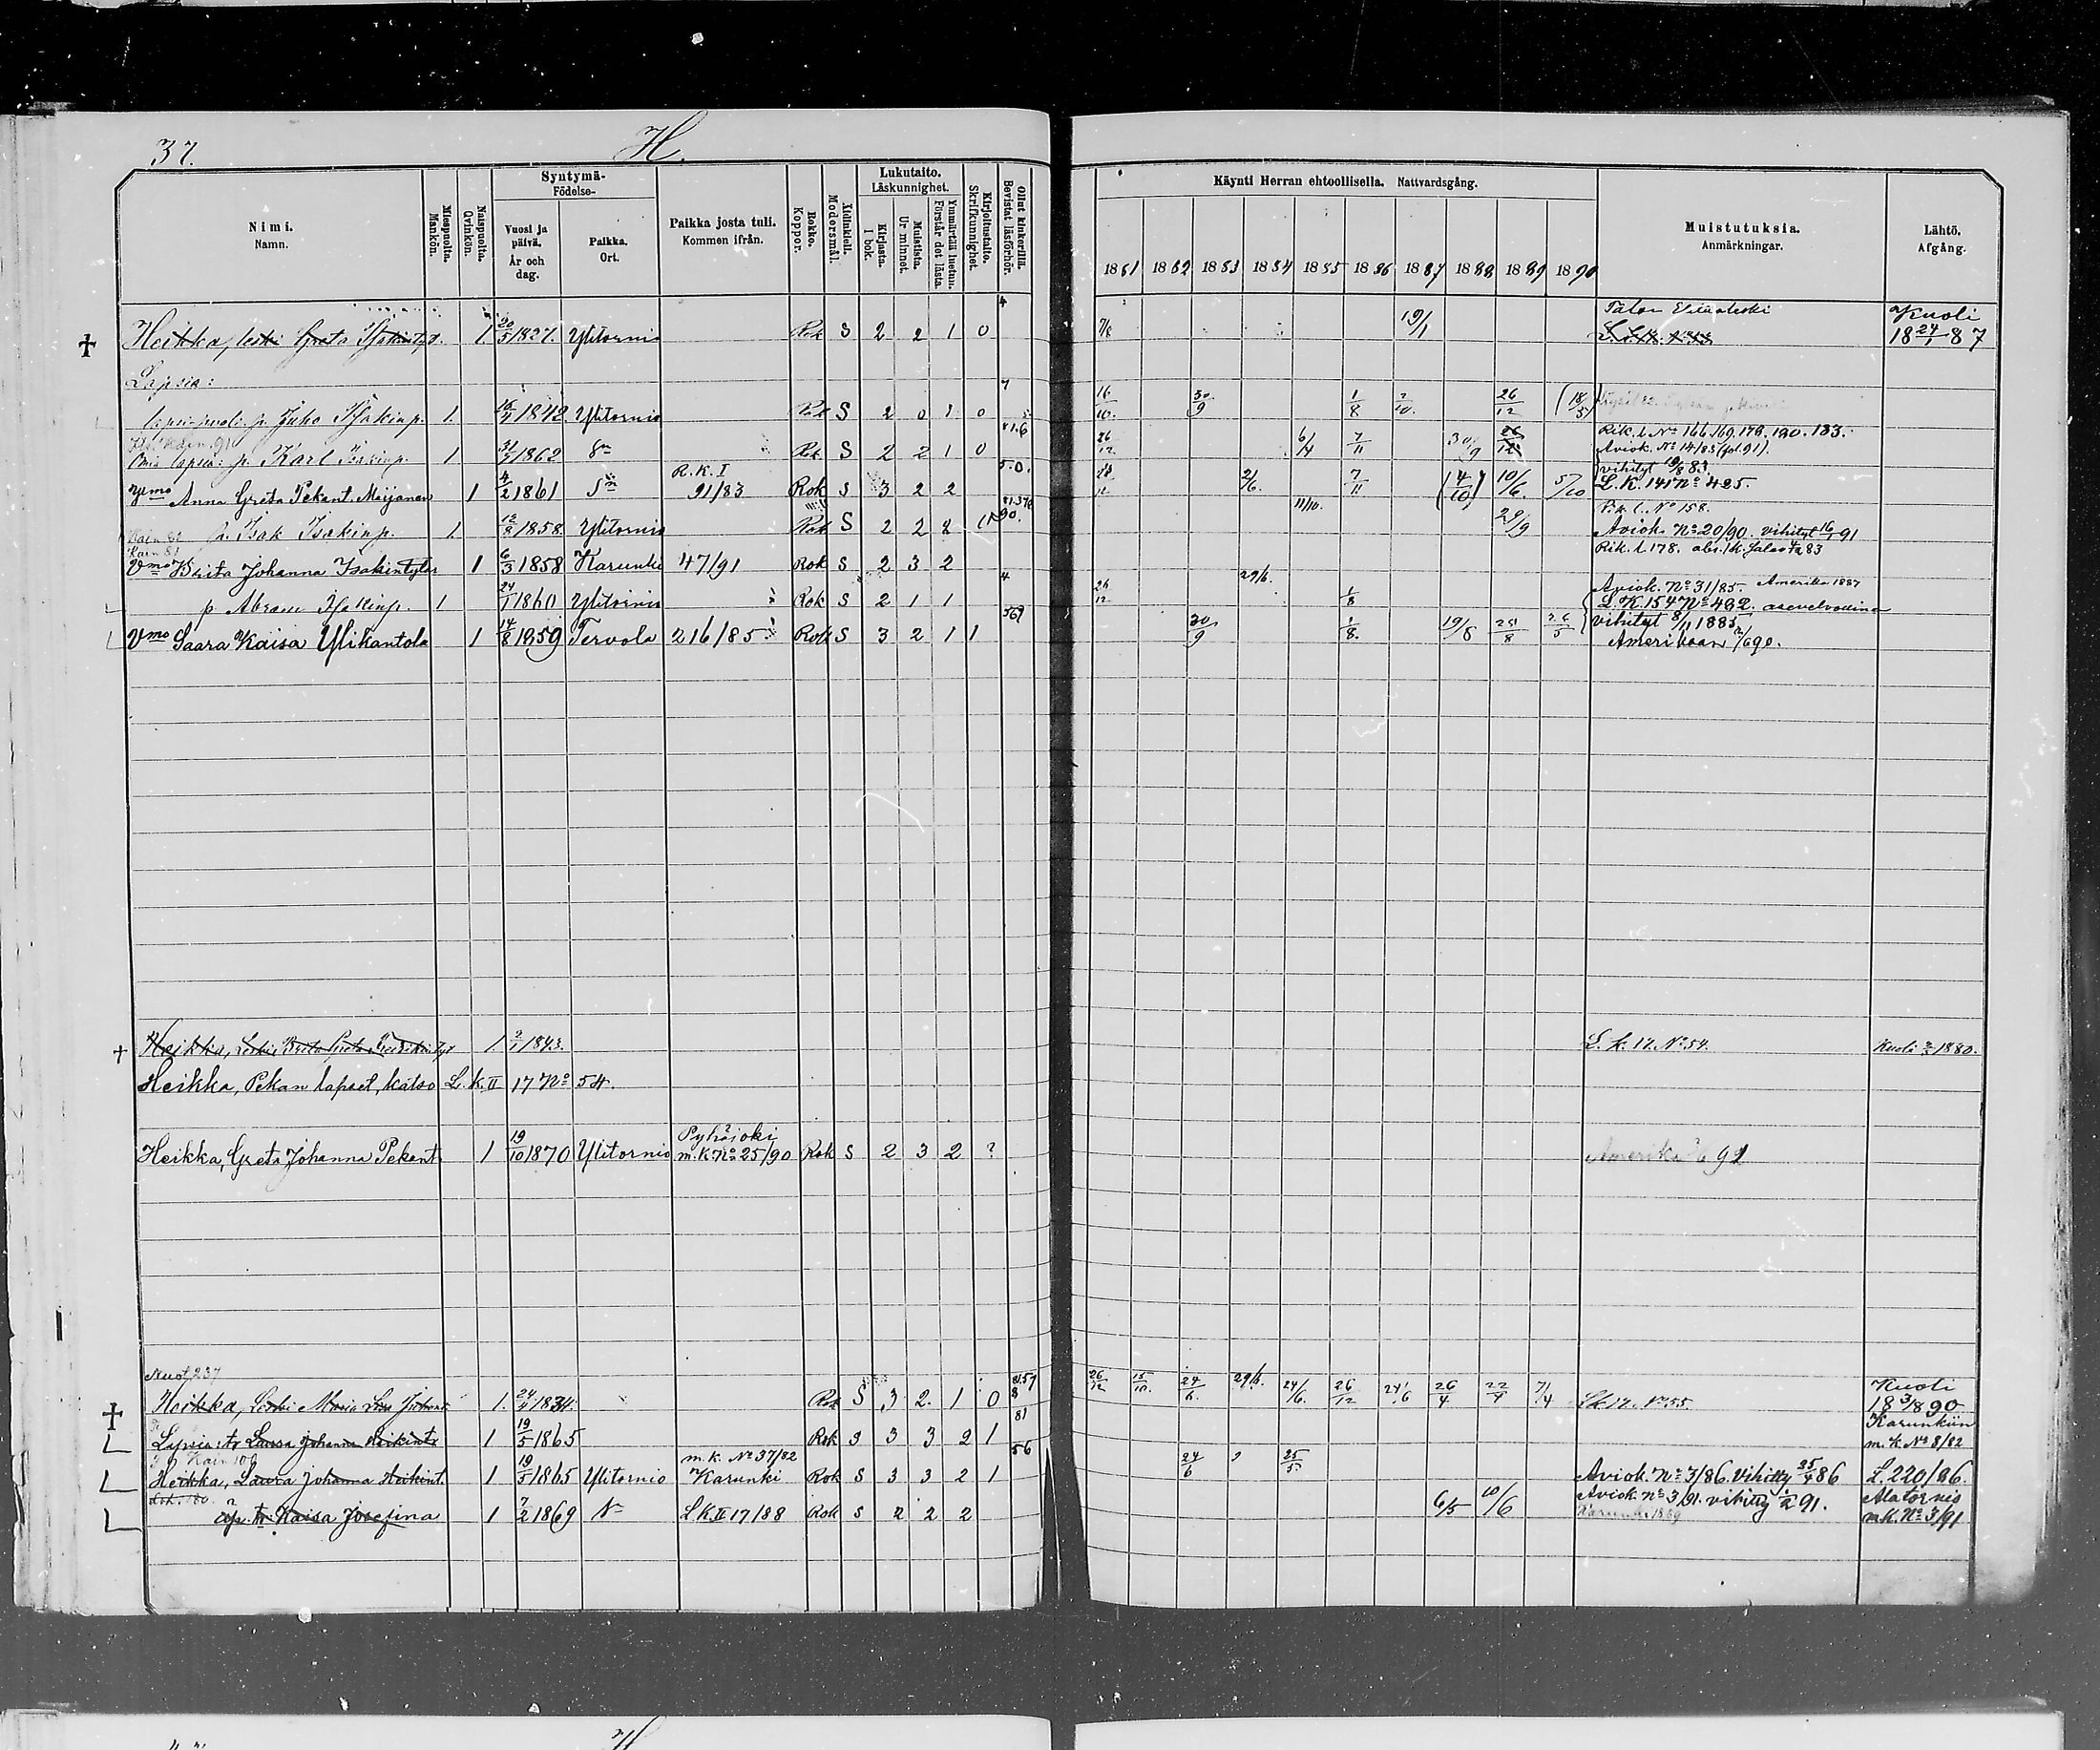 37.
H.
Nimi.
Namn.
Miespuolta.
Mankön.
Naispuolta.
Qvinkön.
Syntymä-
Födelse-
Vuosi ja
päivä.
År och
dag.
Paikka.
Ort.
Paikka josta tuli.
Kommen ifrån.
Rokko.
Koppor.
Äidinkieli.
Modersmål.
Lukutaito.
Läskunnighet.
Kirjasta.
I bok.
Muistista.
Ur minnet.
Ymmärtää luetun.
Förstår det lästa.
Kirjoitustaito.
Skrifkunnighet.
Ollut kinkerillä.
Bevistat läsförhör.
Käynti Herran ehtoollisella. Nattvardsgång.
1881 1882 1883 1884 1885 1886 1887 1888 1889 1890
Muistutuksia.
Anmärkningar.
Lähtö.
Afgång.
Heikka, leski Greta 1 20/5 1827. Ylitornio Rok S 2 2 1 0 4 7/8 19/1 Kuoli
18 24/1 87
Lapsia:
p. Juho Isakinp. 1. 16/4 1842. Ylitornio Rok S 2 0 1 0 7 16/10. 30/9 1/8 2/10. 26/12 (18/5)
p. Karl Isakinp. 1 1862 Rok S 2 2 1 0 26/12 6/4 7/11 30/9 26/12 Rik. l. No 166. 169. 178. 180. 183.
Aviok. No 14/83 (fol. 91).
vihityt 19/8 83.
R.K. I
Vmo Anna Greta Pekant. Marjanen 1 4/2 1861 91/83 Rok S 3 2 2 5.0. 2/6. 7/11 (4/10) 10/6. 5/10 L.K. 141 No 425.
p. Isak Isakinp. 1. 12/8 1858. Ylitornio Rok S 2 2 2 90. 11/10. 29/9 Rik. l. No 158.
Aviok. No 20/90. vihityt 16/1 91
Kain 81
Vmo Brita Johanna Isakintytär 1 6/3 1858 Karunki 47/91 Rok S 2 3 2 29/6. Rik. l. 178.
p Abram Isakinp. 1 24/1 1860 Ylitornio Rok S 2 1 1 4 26/12 1/8 Aviok. No 31/85. Amerika 1887
L.K. 154 No 492. asevelvollinen
Vmo Saara Kaisa Ylikantola 1 14/8 1859 Tervola 216/85 Rok S 3 2 1 1 569 30/9 1/8. 19/8 25/8 26/5 vihityt 8/11 1885
Amerikaan 2/6 90.
Heikka, leski Brita Greta 1. 2/1 1843. L. k. 17. No 54. Kuoli 1880.
Heikka, Pekan lapset, katso L.K. II 17 No 54.
Pyhäjoki
Heikka, Greta Johanna Pekant. 1 19/10 1870 Ylitornio m.k No 25/90 Rok S 2 3 2 ? Amerika 91
Muol. 237
Heikka, Leski Maria Lisa Juhont. 1. 24/4 1834. Rok S 3 2. 1 0 26/12 15/10. 24/6. 29/6. 24/6. 26/12 24/6 26/4 22/4 7/4 Lk. 17. No 55. Kuoli
18 3/8 90
Lapsia: tr Laura Johanna Heikint. 1 19/5 1865 Rok S 3 3 2 1 81 Karunkiin
m.k. No 8/82
Kain 109 m.k. No 37/82
Heikka, Laura Johanna Heikint. 1 19/5 1865 Ylitornio Karunki Rok S 3 3 2 1 56 24/6 25/5. Aviok. No 3/86. Vihitty 25/4 86 L. 220/86.
äp. tr. Kaisa Josefina 1 7/2 1869 L.K. II 17/88 Rok S 2 2 2 6/5 10/6 Aviok. No 3/91. vihitty 91. Alatornio
m.k. No 3/91
H